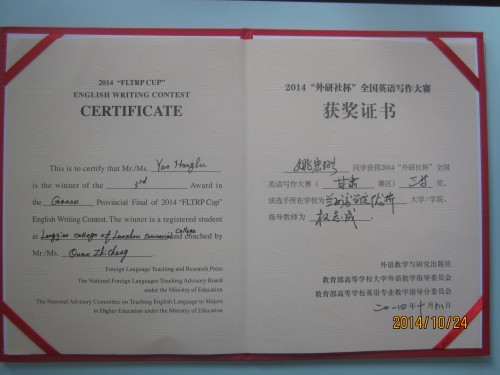 2014 "FLTRP CUP"
ENGLISH WRITING CONTEST
CERTIFICATE
This is to certify that Mr./Ms. Yao Honglu
is the winner of the 3rd Award in
the Gansu Provincial Final of 2014 "FLTRP Cup"
English Writing Contest. The winner is a registered student
at Longqiao College of Lanzhou Commercial College and coached by
Mr./Ms. Quan Zhicheng
Foreign Language Teaching and Research Press
The National Foreign Languages Teaching Advisory Board
under the Ministry of Education
The National Advisory Committee on Teaching English Language to Majors
in Higher Education under the Ministry of Education
2014 "外研社杯" 全国英语写作大赛
获奖证书
姚 同学获得2014 "外研社杯" 全国
英语写作大赛（ 甘肃 赛区） 三等 奖。
该选手所在学校为 兰州商学院陇桥 大学/学院,
指导教师为 权志成 。
外语教学与研究出版社
教育部高等学校大学外语教学指导委员会
教育部高等学校英语专业教学指导分委员会
二〇一四年十月 日
2014/10/24